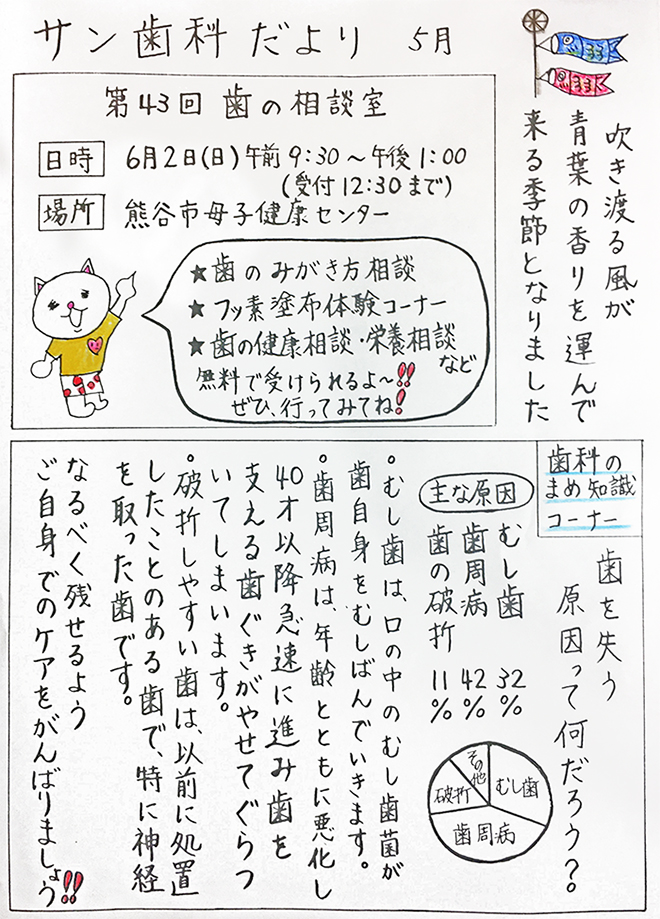 サン歯科だより 5月
吹き渡る風が
青葉の香りを運んで
来る季節となりました
第43回 歯の相談室
日時 6月2日(日)午前9:30~午後1:00
(受付12:30まで)
場所 熊谷市母子健康センター
★歯のみがき方相談
★フッ素塗布体験コーナー
★歯の健康相談・栄養相談
など
無料で受けられるよ~!!
ぜひ、行ってみてね!
歯科の
まめ知識
コーナー
歯を失う
原因って何だろう?。
主な原因
むし歯 32%
歯周病 42%
歯の破折 11%
むし歯
歯周病
破折
その他
・むし歯は、口の中のむし歯菌が
歯自身をむしばんでいきます。
・歯周病は年齢とともに悪化し
40才以降急速に進み歯を
支える歯ぐきがやせてぐらつ
いてしまいます。
・破折しやすい歯は、以前に処置
したことのある歯で、特に神経
を取った歯です。
なるべく残せるよう
ご自身でのケアをがんばりましょう!!